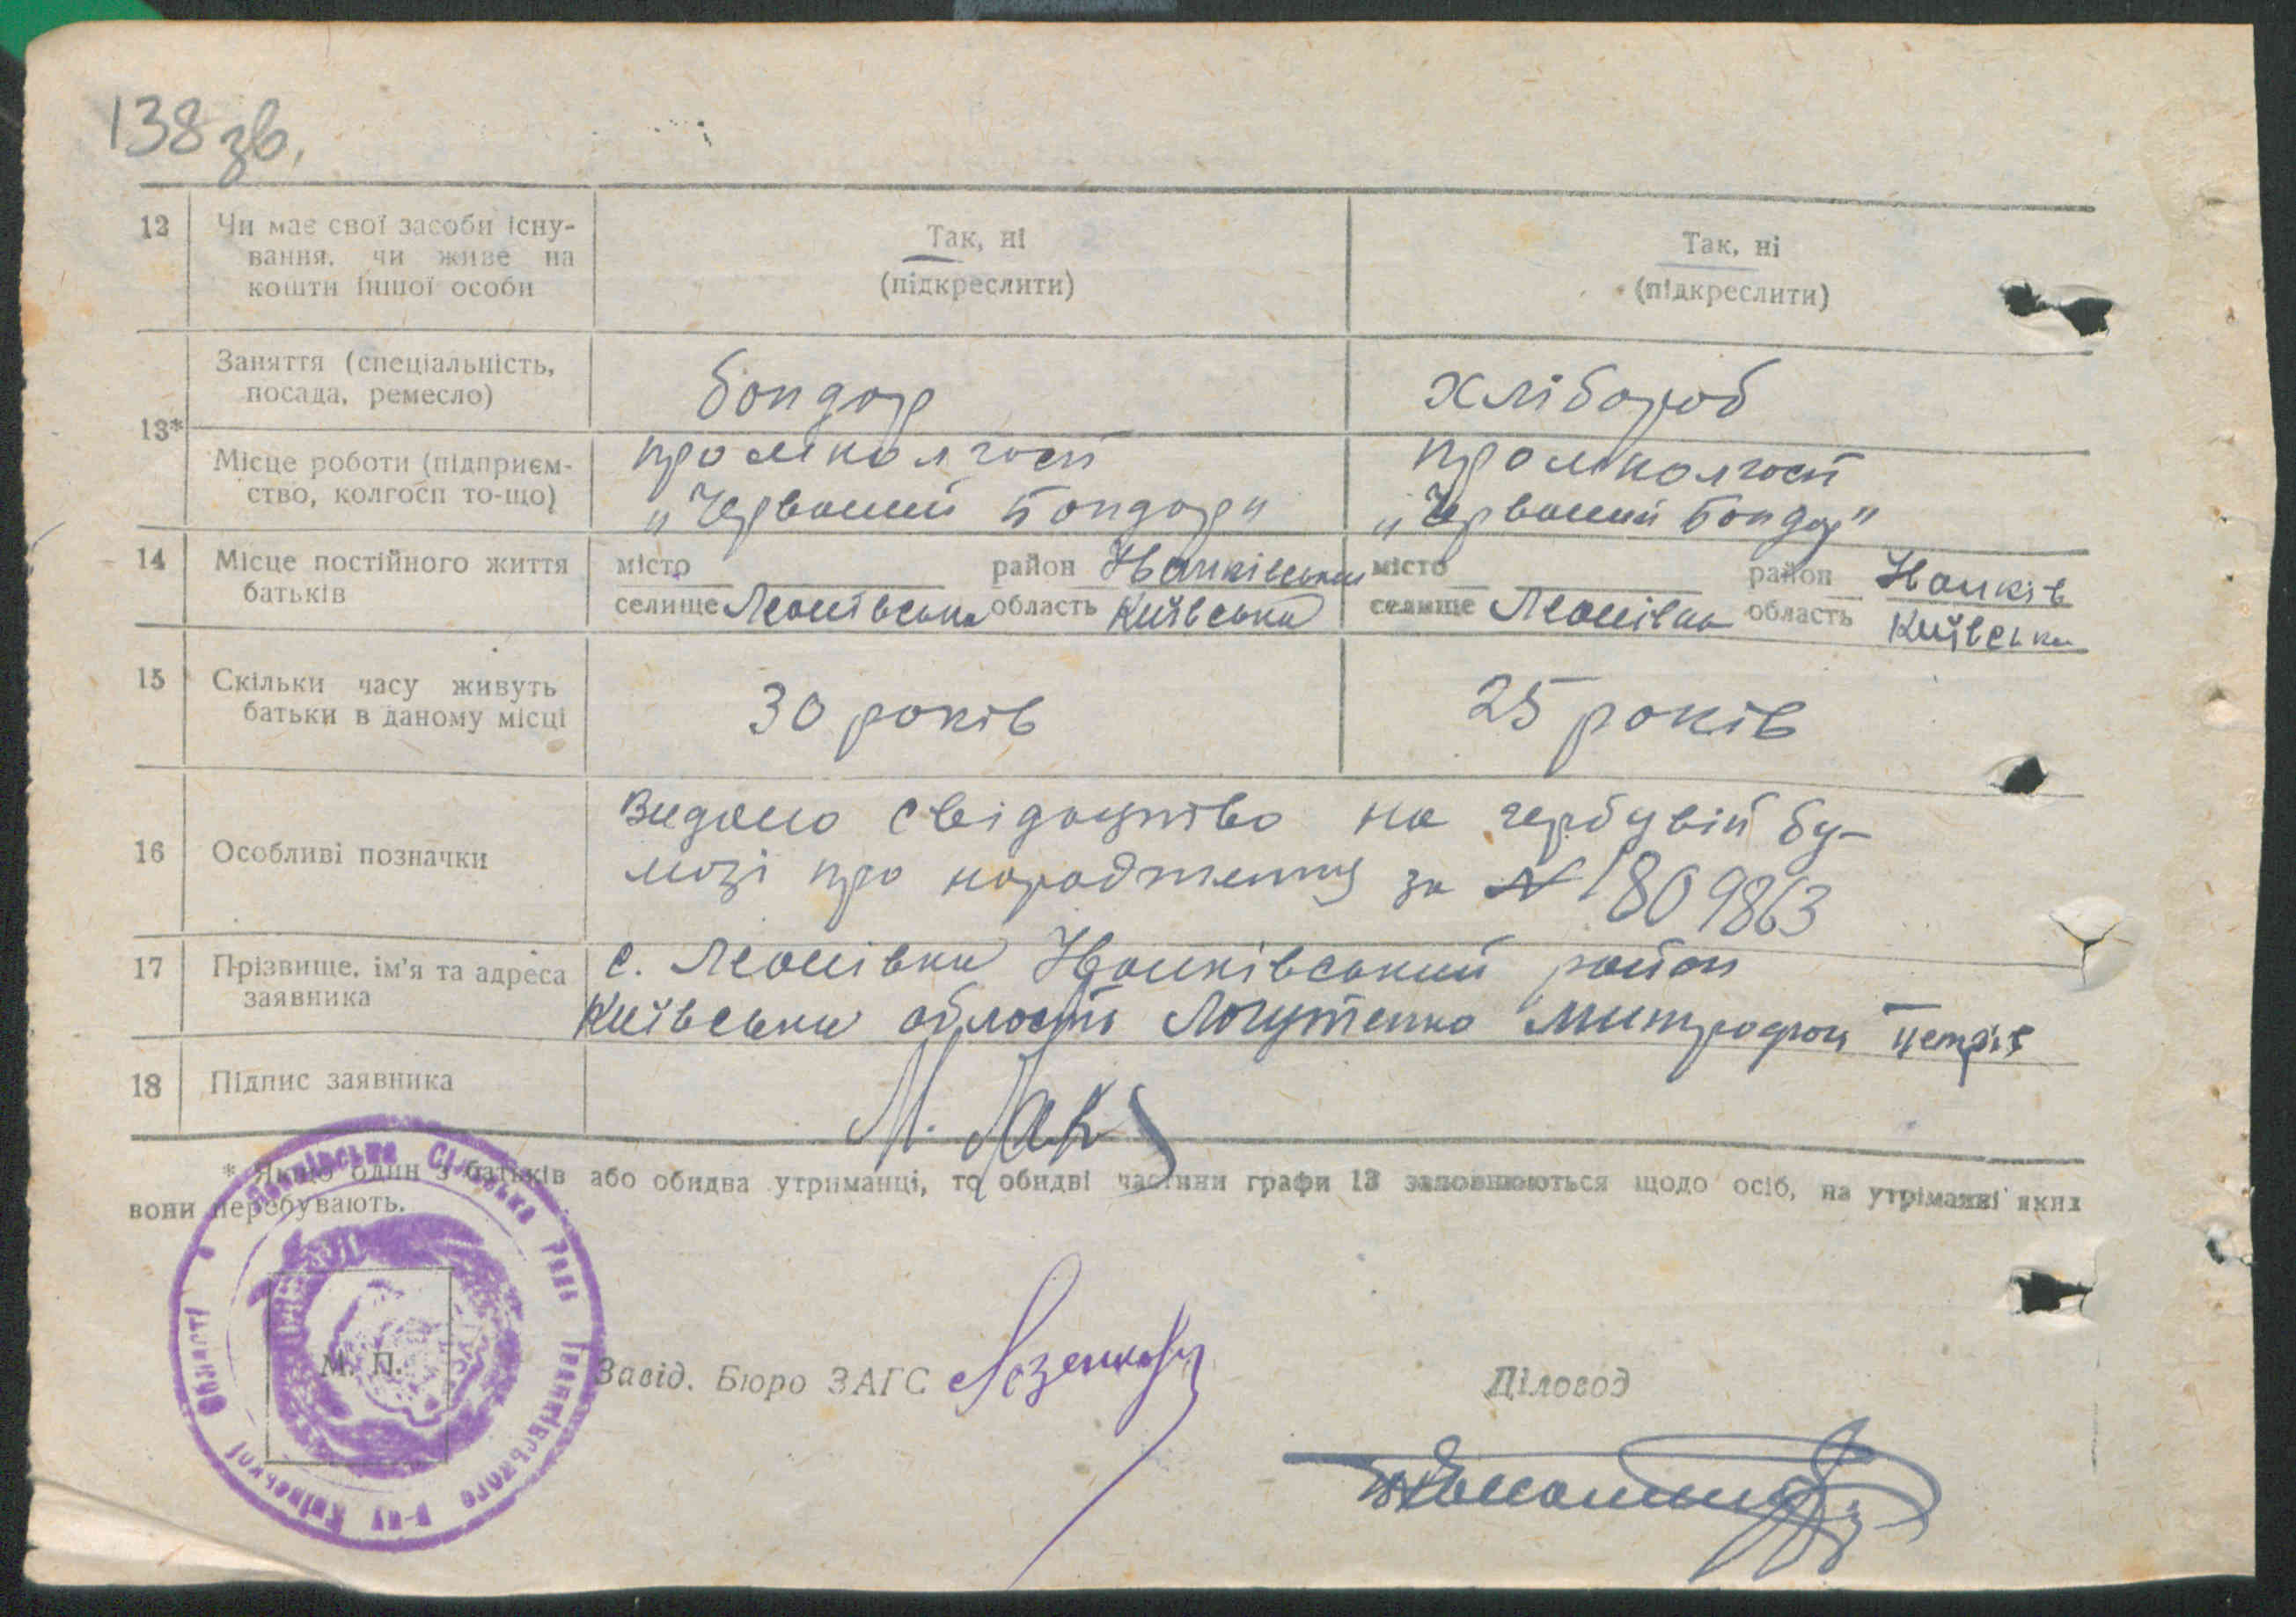 138 зв.
12 Чи має свої засоби існу-
вання, чи живе на
кошти іншої особи
Так, ні
(підкреслити)
Так, ні
(підкреслити)
13*
Заняття (спеціальність,
посада, ремесло)
бондар
хлібороб
Місце роботи (підприєм-
ство, колгосп то-що)
промколгосп
„Червоний Бондар"
промколгосп
„Червоний Бондар"
14 Місце постійного життя
батьків
місто район Іванківський
селище Леонівська область Київська
місто район Іванків
селище Леонівка область Київська
15 Скільки часу живуть
батьки в даному місці
30 років
25 років
16 Особливі позначки
Видано свідоцтво на гербувій бу-
мозі про народження за № 1809863
17 Прізвище, ім'я та адреса
заявника
с. Леонівка Іванківський район
Київська область Митрофон Петрів
18 Підпис заявника
М.
* Якщо один з батьків або обидва утриманці, то обидві частини графи 13 заповнюються щодо осіб, на утріманні яких
вони перебувають.
Сільська Рада Іванківського р-ну Київської Області
М. П.
Завід. Бюро ЗАГС
Діловод